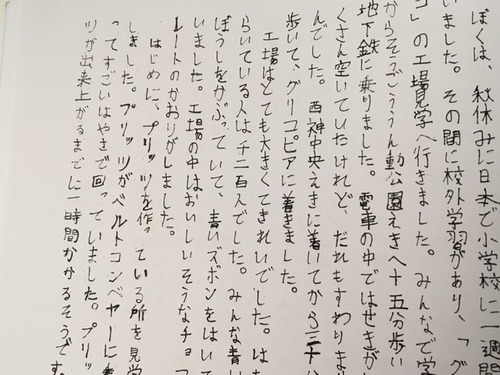 ぼくは、秋休みに日本で小学校に一週間
いました。その間に校外学習があり、「グ
コ」の工場見学へ行きました。みんなで学
からそうごううん動公園えきへ十五分歩い
地下鉄に乗りました。電車の中ではせきが
くさん空いていたけれど、だれもすわりま
んでした。西神中央えきに着いてから二十分
歩いて、グリコピアに着きました。
工場はとても大きくてきれいでした。はた
らいている人は千二百人でした。みんな青い
ぼうしをかぶっていて、青いズボンをはいて
いました。工場の中はおいしいそうなチョコ
レートのかおりがしました。
はじめに、プリッツを作っている所を見学
しました。プリッツがベルトコンベヤーに
ってすごいはやさで回っていました。プリッ
ツが出来上がるまでに一時間かかるそうです。